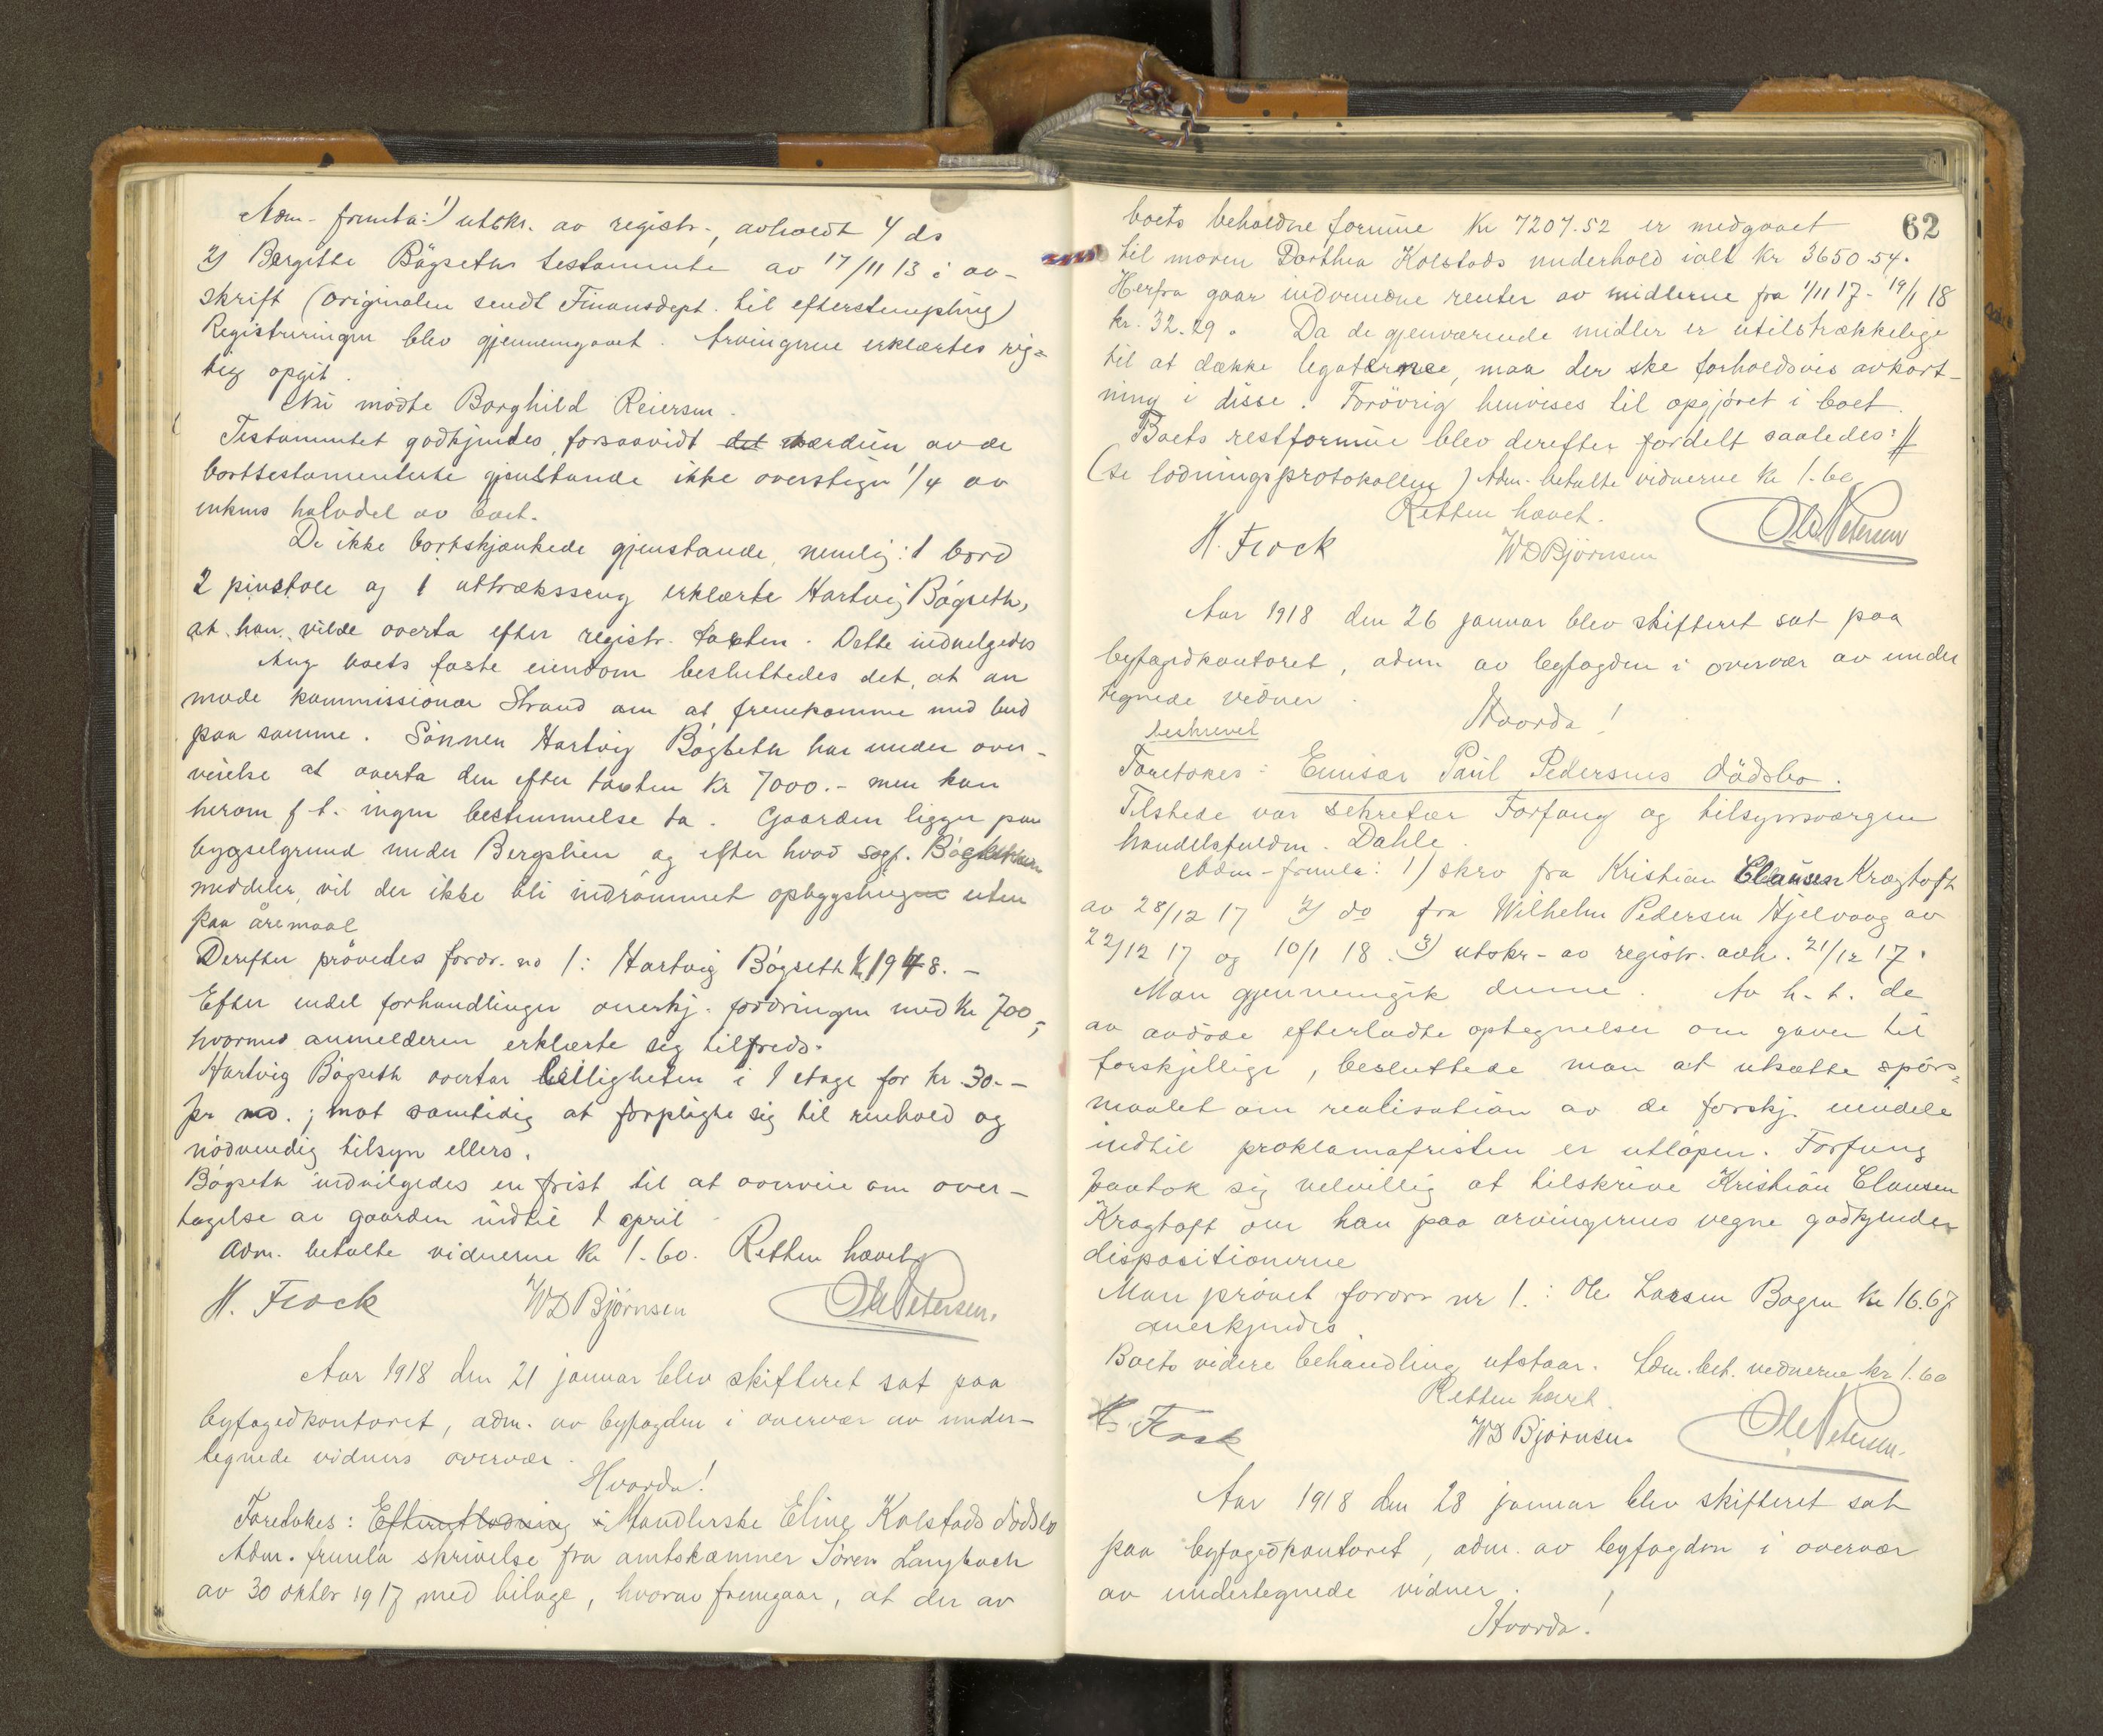 Adm. fremla: 1) utskr. av registr., avholdt 4 ds
2) Bergitte Bögseths testamente av 17/11 13 i av-
skrift (originalen sendt Finansdept. til efterstempling)
Registreringen blev gjennemgaaet. Arvingerne erklærtes rig-
tig opgit.
Nu mödte Borghild Reiersen.
Testamentet godkjendes, forsaavidt det værdien av de
borttestamenterte gjenstande ikke overstiger 1/4 av
enkens halvdel av boet.
De ikke bortskjænkede gjenstande, nemlig: 1 bord
2 pinstole og 1 uttræksseng erklærte Hartvig Bögseth,
at han vilde overta efter registr. taxten. Dette indvilgedes
Ang. boets faste eiendom besluttedes det, at an
mode kommissionær Strand om at fremkomme med bud
paa samme. Sönnen Hartvig Bögseth har under over-
veielse at overta den efter taxten Kr 7000.- men kan
herom f. t. ingen bestemmelse ta. Gaarden ligger paa
bygselgrund under Bergslien og efter hvad sagf.
meddeler, vil der ikke bli indrömmet opbygsling uten
paa åremaal
Derefter prövedes fordr. no 1: Hartvig Bögseth K 1948.-
Efter endel forhandlinger anerkj. fordringen med Kr 700,-
hvormed anmelderen erklærte sig tilfreds.
Hartvig Bögseth overtar leiligheten i 1 etage for kr. 30.-
pr md.; mot samtidig at forpligte sig til renhold og
nödvendig tilsyn ellers.
Bögseth indvilgedes en frist til at overveie om over-
tagelse av gaarden indtil 1 april.
Adm. betalte vidnerne Kr 1.60. Retten hævet
H. Flock WD Björnsen Ole Petersen.
Aar 1918 den 21 januar blev skifteret sat paa
byfogedkontoret, adm. av byfogden i overvær av under-
tegnede vidners overvær.
Hvorda!
Foretokes: Efterutlodning i Handlerske Eline Kolstads dödsbo
Adm. fremla skrivelse fra amtskæmner Sören Langbach
av 30 oktbr 1917 med bilage, hvorav fremgaar, at der av
62
boets beholdne formue Kr 7207.52 er medgaaet
til moren Dorthea Kolstads underhold ialt kr 3650.54.
Herfra gaar indvundne renter av midlerne fra 1/11 17 - 19/1 18
kr. 32.29. Da de gjenværende midler er utilstrækkelige
til at dække legaterne, maa der ske forholdsvis avkort-
ning i disse. Forövrig henvises til opgjöret i boet.
Boets restformue blev derefter fordelt saaledes: //
(se lodningsprotokollen) Adm. betalte vidnerne kr 1.60
Retten hævet.
H. Flock WD Björnsen Ole Petersen
Aar 1918 den 26 januar blev skifteret sat paa
byfogedkontoret, adm av byfogden i overvær av under
tegnede vidner.
Hvorda!
beskrevet
Foretokes: Emissær Paul Pedersens dödsbo.
Tilstede var sekretær Forfang og tilsynsværgen
handelsfuldm. Dahle.
Adm. fremla: 1) skrv fra Kristian Clausen Kragtoft
av 28/12 17 2) do fra Wilhelm Pedersen Hjelvaag av
22/12 17 og 10/1 18. 3) utskr. av registr. avh. 21/12 17.
Man gjennemgik denne. Av h. t. de
av avdöde efterladte optegnelser om gaver til
forskjellige, besluttede man at utsætte spörs-
maalet om realisation av de forskj. eiendele
indtil proklamafristen er utlöpen. Forfang
paatok sig velvillig at tilskrive Kristian Clausen
Kragtoft om han paa arvingernes vegne godkjender
dispositionerne
Man prövet fordr nr 1.: Ole Larsen Bogen Kr 16.67
anerkjendes.
Boets videre behandling utstaar. Adm. bet. vidnerne kr 1.60
Retten hævt.
H. Flock WD Björnsen Ole Petersen.
Aar 1918 den 28 januar blev skifteret sat
paa byfogedkontoret, adm. av byfogden i overvær
av undertegnede vidner.
Hvorda!